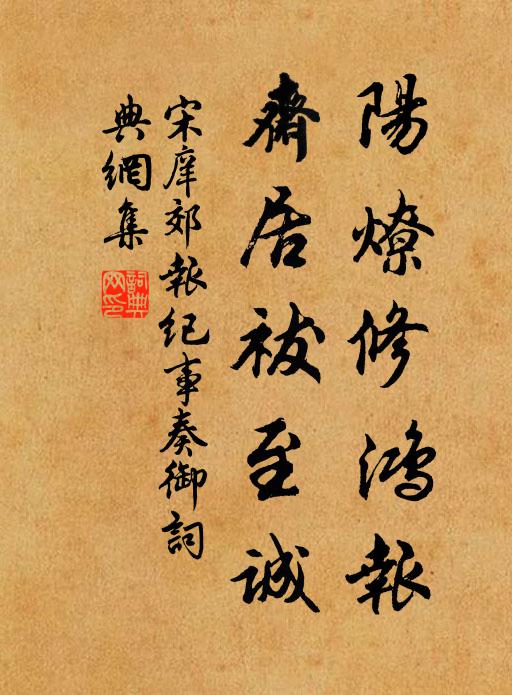 陽燎修鴻報
齋居祓至誠
宋庠郊報紀事奏御詞
典網集
詞典
網印